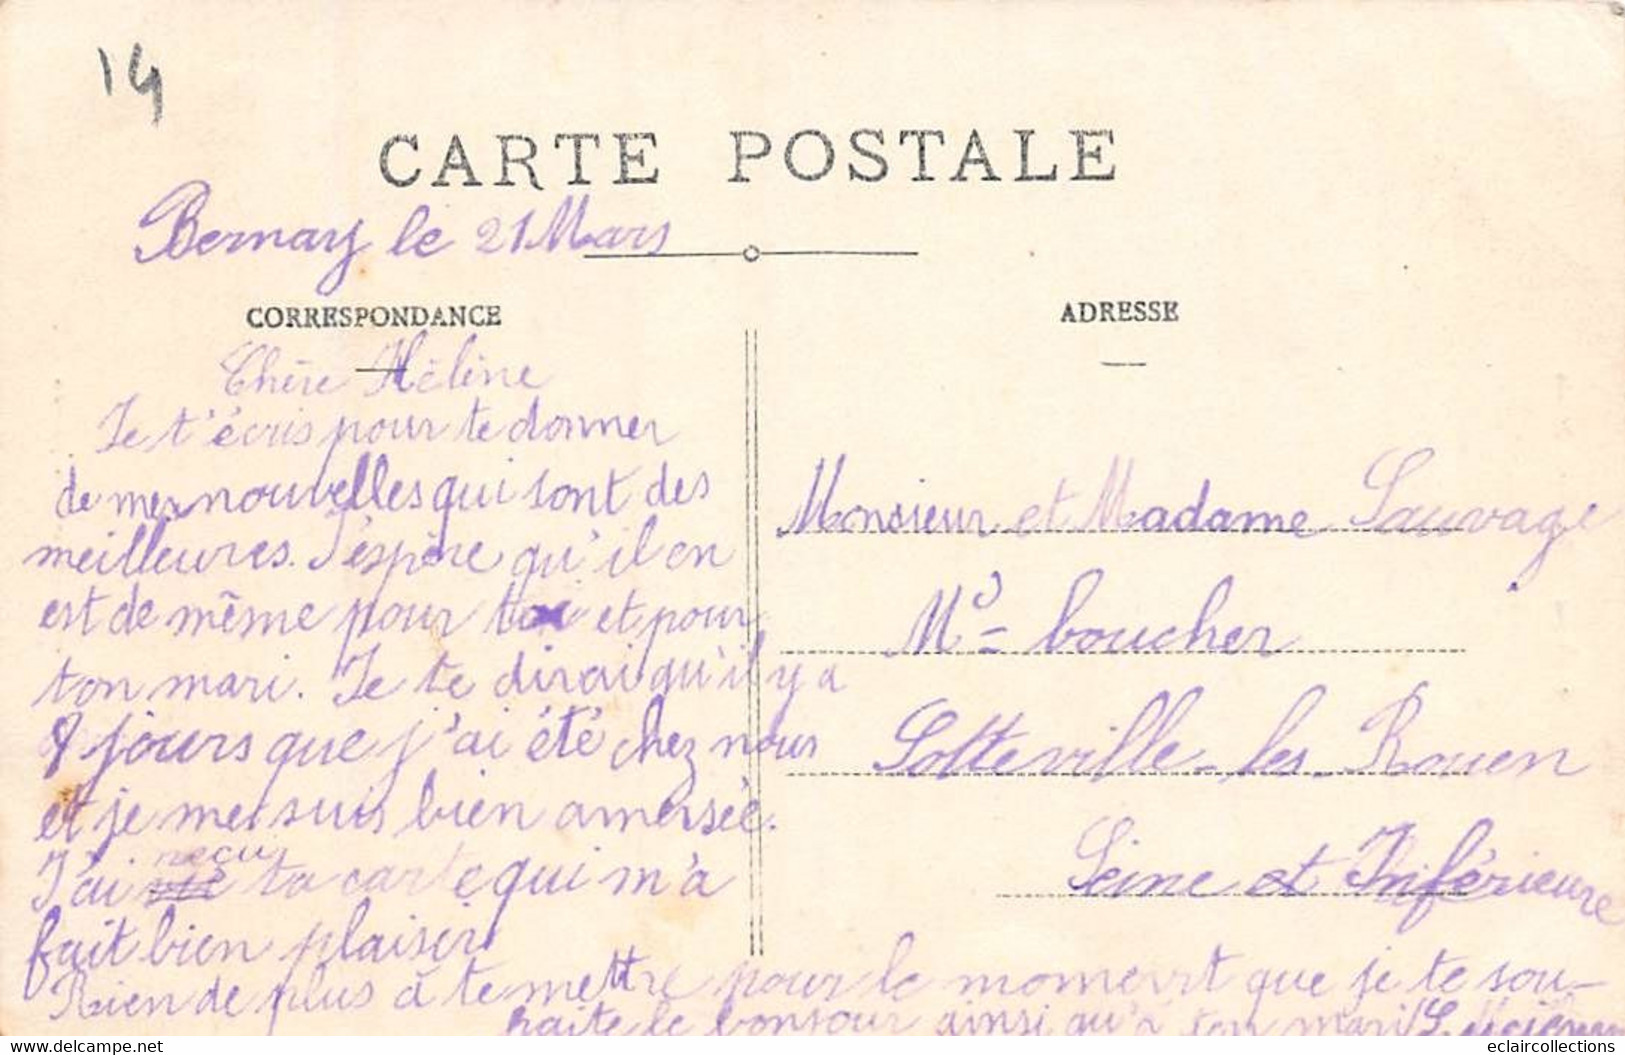 14
CARTE POSTALE
Bernay le 21 Mars
CORRESPONDANCE
Chère Hélène
Je t'écris pour te donner
de mes nouvelles qui sont des
meilleures. J'éspère qu'il en
est de même pour toi et pour
ton mari. Je te dirai qu'il y a
8 jours que j'ai été chez nous
et je me suis bien amersée.
J'ai reçu ta carte qui m'a
fait bien plaisir
Rien de plus à te mettre pour le moment que je te sou-
haite le bonsour ainsi qu'à ton mari
ADRESSE
Monsieur et Madame Sauvage
Md boucher
Sotteville-les-Rouen
Seine et Inférieure
eclaircollections